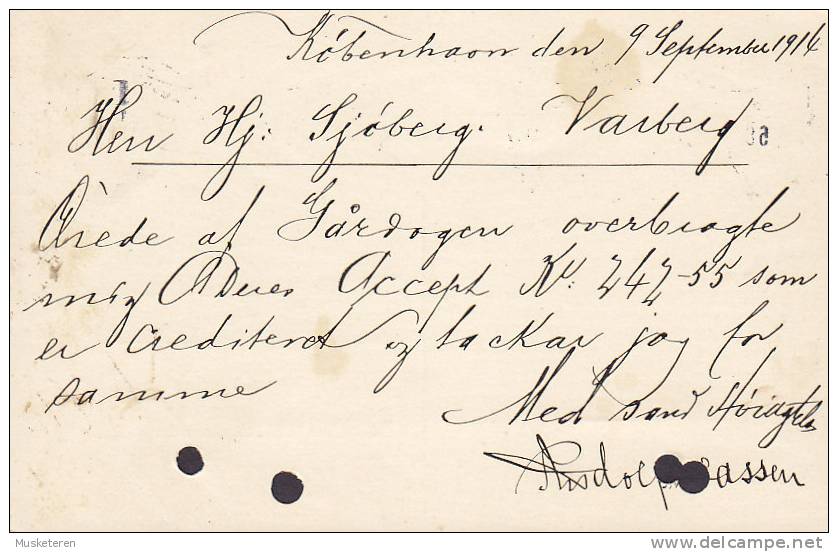 København den 9 September 1914
Herr Hj: Sjöberg. Varberg
Ærede af Gårdagen overbragte
mig Deres Accept Kr. 242-55 som
er crediteret og tackar jag for
samme
Med sand Høiagtelse
Rudolp Sassen
Musketeren
delcampe.net